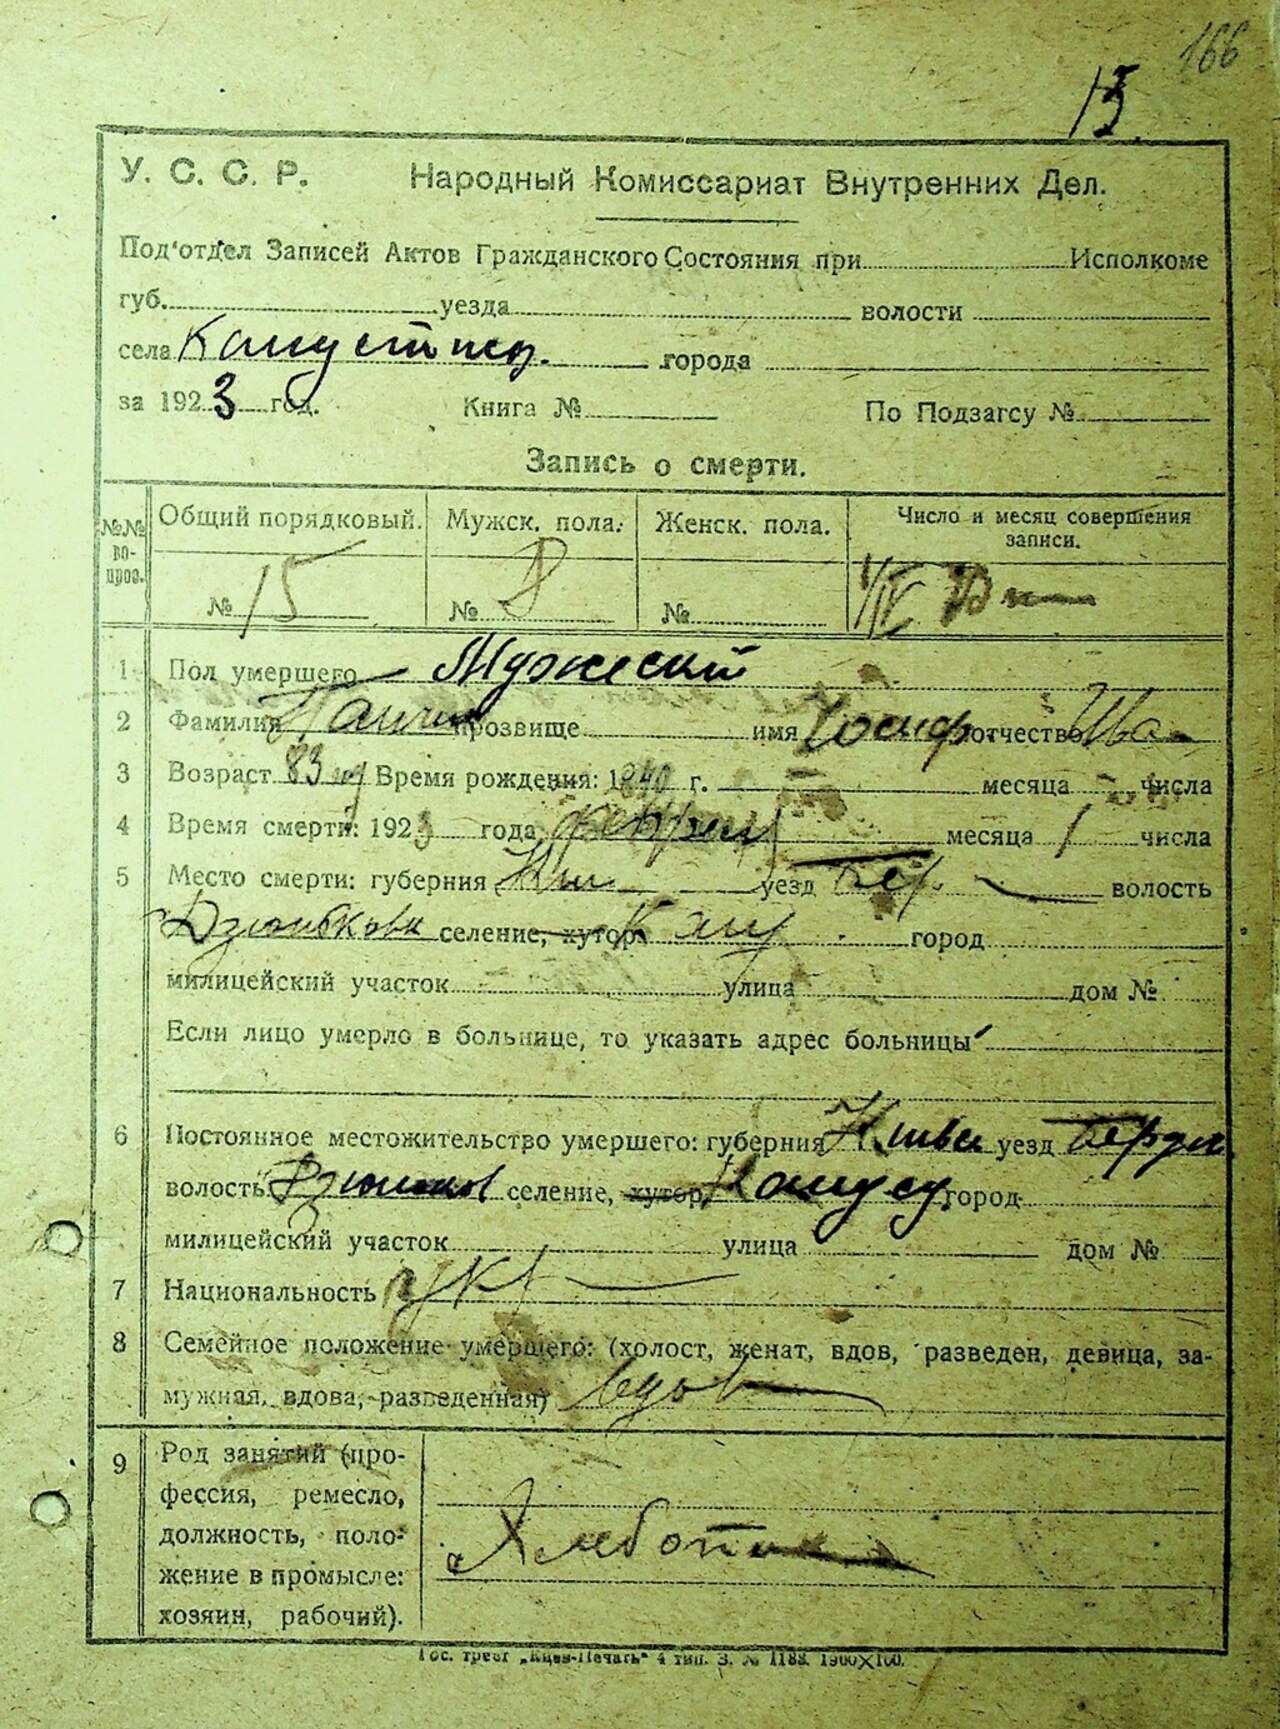 166
15.
У. С. С. Р. Народный Комиссариат Внутренних Дел.
Под'отдел Записей Актов Гражданского Состояния при Исполкоме
губ. уезда волости
села города
за 1923 год. Книга № По Подзагсу №
Запись о смерти.
№№ вопрос. Общий порядковый. Мужск. пола. Женск. пола. Число и месяц совершения записи.
№ 15 № 8 № 1/IV
1 Пол умершего Мужеский
2 Фамилия прозвище имя Иосиф отчество Ива
3 Возраст 83 Время рождения: 1840 г. месяца числа
4 Время смерти: 1923 года месяца 1 числа
5 Место смерти: губерния Ки уезд Бер. волость
селение, хутор Кап город
милицейский участок улица дом №
Если лицо умерло в больнице, то указать адрес больницы
6 Постоянное местожительство умершего: губерния Киев уезд Берди
волость селение, хутор Капус город
милицейский участок улица дом №
7 Национальность укр
8 Семейное положение умершего: (холост, женат, вдов, разведен, девица, за-
мужная, вдова, разведенная) вдов
9 Род занятий (про-
фессия, ремесло,
должность, поло-
жение в промысле:
хозяин, рабочий).
Гос. трест „Киев-Печать" 4 тип. З. № 1188. 1900X100.